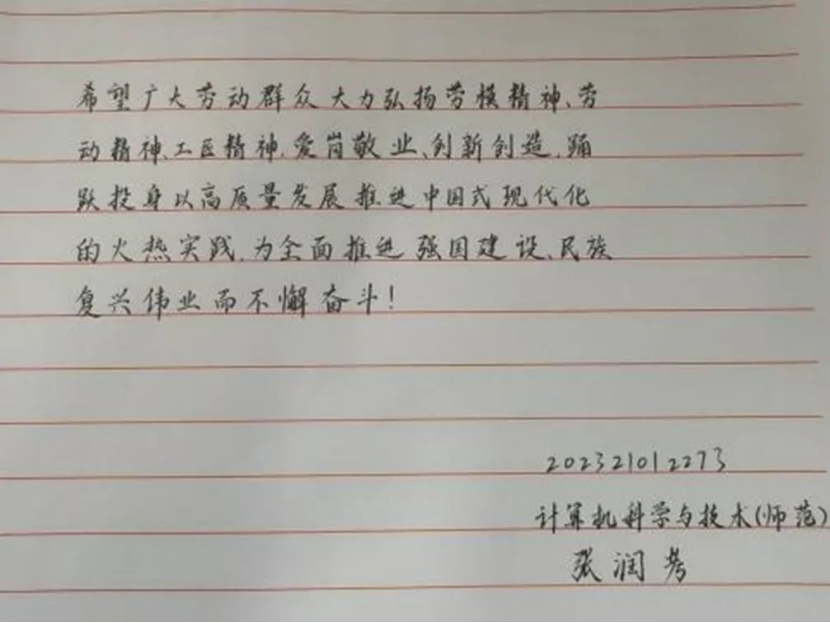 希望广大劳动群众大力弘扬劳模精神、劳
动精神、工匠精神,爱岗敬业、创新创造,踊
跃投身以高质量发展推进中国式现代化
的火热实践,为全面推进强国建设、民族
复兴伟业而不懈奋斗!
202321012273
计算机科学与技术(师范)
张润考